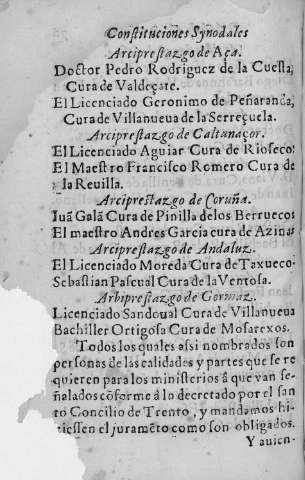 Constituciones Synodales
Arciprestazgo de Aça.
Doctor Pedro Rodriguez de la Cuesta,
Cura de Valdeçate.
El Licenciado Geronimo de Peñaranda,
Cura de Villanueua de la Serreçuela.
Arciprestazgo de Caltanaçor.
El Licenciado Aguiar Cura de Rioseco.
El Maestro Francisco Romero Cura de
la Reuilla.
Arciprestazgo de Coruña.
Iuã Galã Cura de Pinilla delos Berruecos
El maestro Andres Garcia cura de Azinas
Arciprestazgo de Andaluz.
El Licenciado Moreda Cura de Taxueco.
Sebastian Pascual Cura de la Ventosa.
Arbiprestazgo de Gormaz.
Licenciado Sandoual Cura de Villanueua
Bachiller Ortigosa Cura de Mosarexos.
Todos los quales assi nombrados son
personas de las calidades y partes que se re
quieren para los ministerios â que van se-
ñalados cõforme â lo decretado por el san
to Concilio de Trento, y mandamos hi-
ziessen el juramẽto como son obligados.
Y auien-